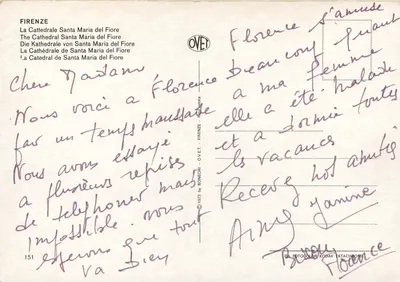 FIRENZE
La Cattedrale Santa Maria del Fiore
The Cathedral Santa Maria del Fiore
Die Kathedrale von Santa Maria del Fiore
La Cathédrale de Santa Maria del Fiore
La Catedral de Santa Maria del Fiore
OVET
Chere Madame
Nous voici a Florence
par un temps maussade
Nous avons essayé
a plusieurs reprises
de telephoner mais
impossible. nous
esperons que tout
va bien
151
Florence s'amuse
beaucoup quant
a ma femme
elle a été malade
et a dormie toutes
les vacances
Recevez nos amitiés
Janine
Florence